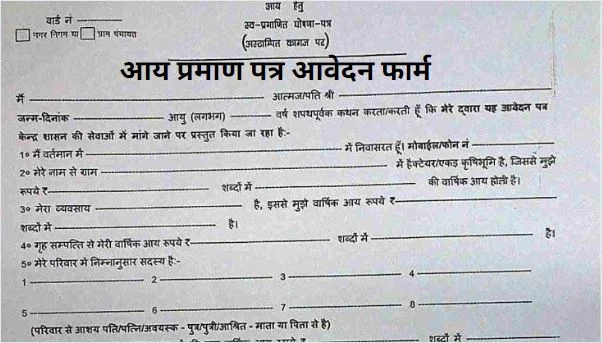 आय हेतु
वार्ड नं
स्व-प्रमाणित घोषणा-पत्र
नगर निगम या ग्राम पंचायत
(अस्टाम्पित कागज पर)
आय प्रमाण पत्र आवेदन फार्म
मैं आत्मज/पति श्री
जन्म-दिनांक आयु (लगभग) वर्ष शपथपूर्वक कथन करता/करती हूँ कि मेरे द्वारा यह आवेदन पत्र
केन्द्र शासन की सेवाओं में मांगे जाने पर प्रस्तुत किया जा रहा है:-
1० मैं वर्तमान में में निवासरत हूँ। मोबाईल/फोन नं
2० मेरे नाम से ग्राम में हैक्टेयर/एकड़ कृषिभूमि है, जिससे मुझे
रूपये ₹ शब्दों में की वार्षिक आय होती है।
3० मेरा व्यवसाय है, इससे मुझे वार्षिक आय रूपये ₹
शब्दों में है।
4० गृह सम्पत्ति से मेरी वार्षिक आय रूपये ₹ शब्दों में है।
5० मेरे परिवार में निम्नानुसार सदस्य है:-
1 2 3 4
5 6 7 8
(परिवार से आशय पति/पत्नि/अवयस्क - पुत्र/पुत्री/आश्रित - माता या पिता से है)
शब्दों में